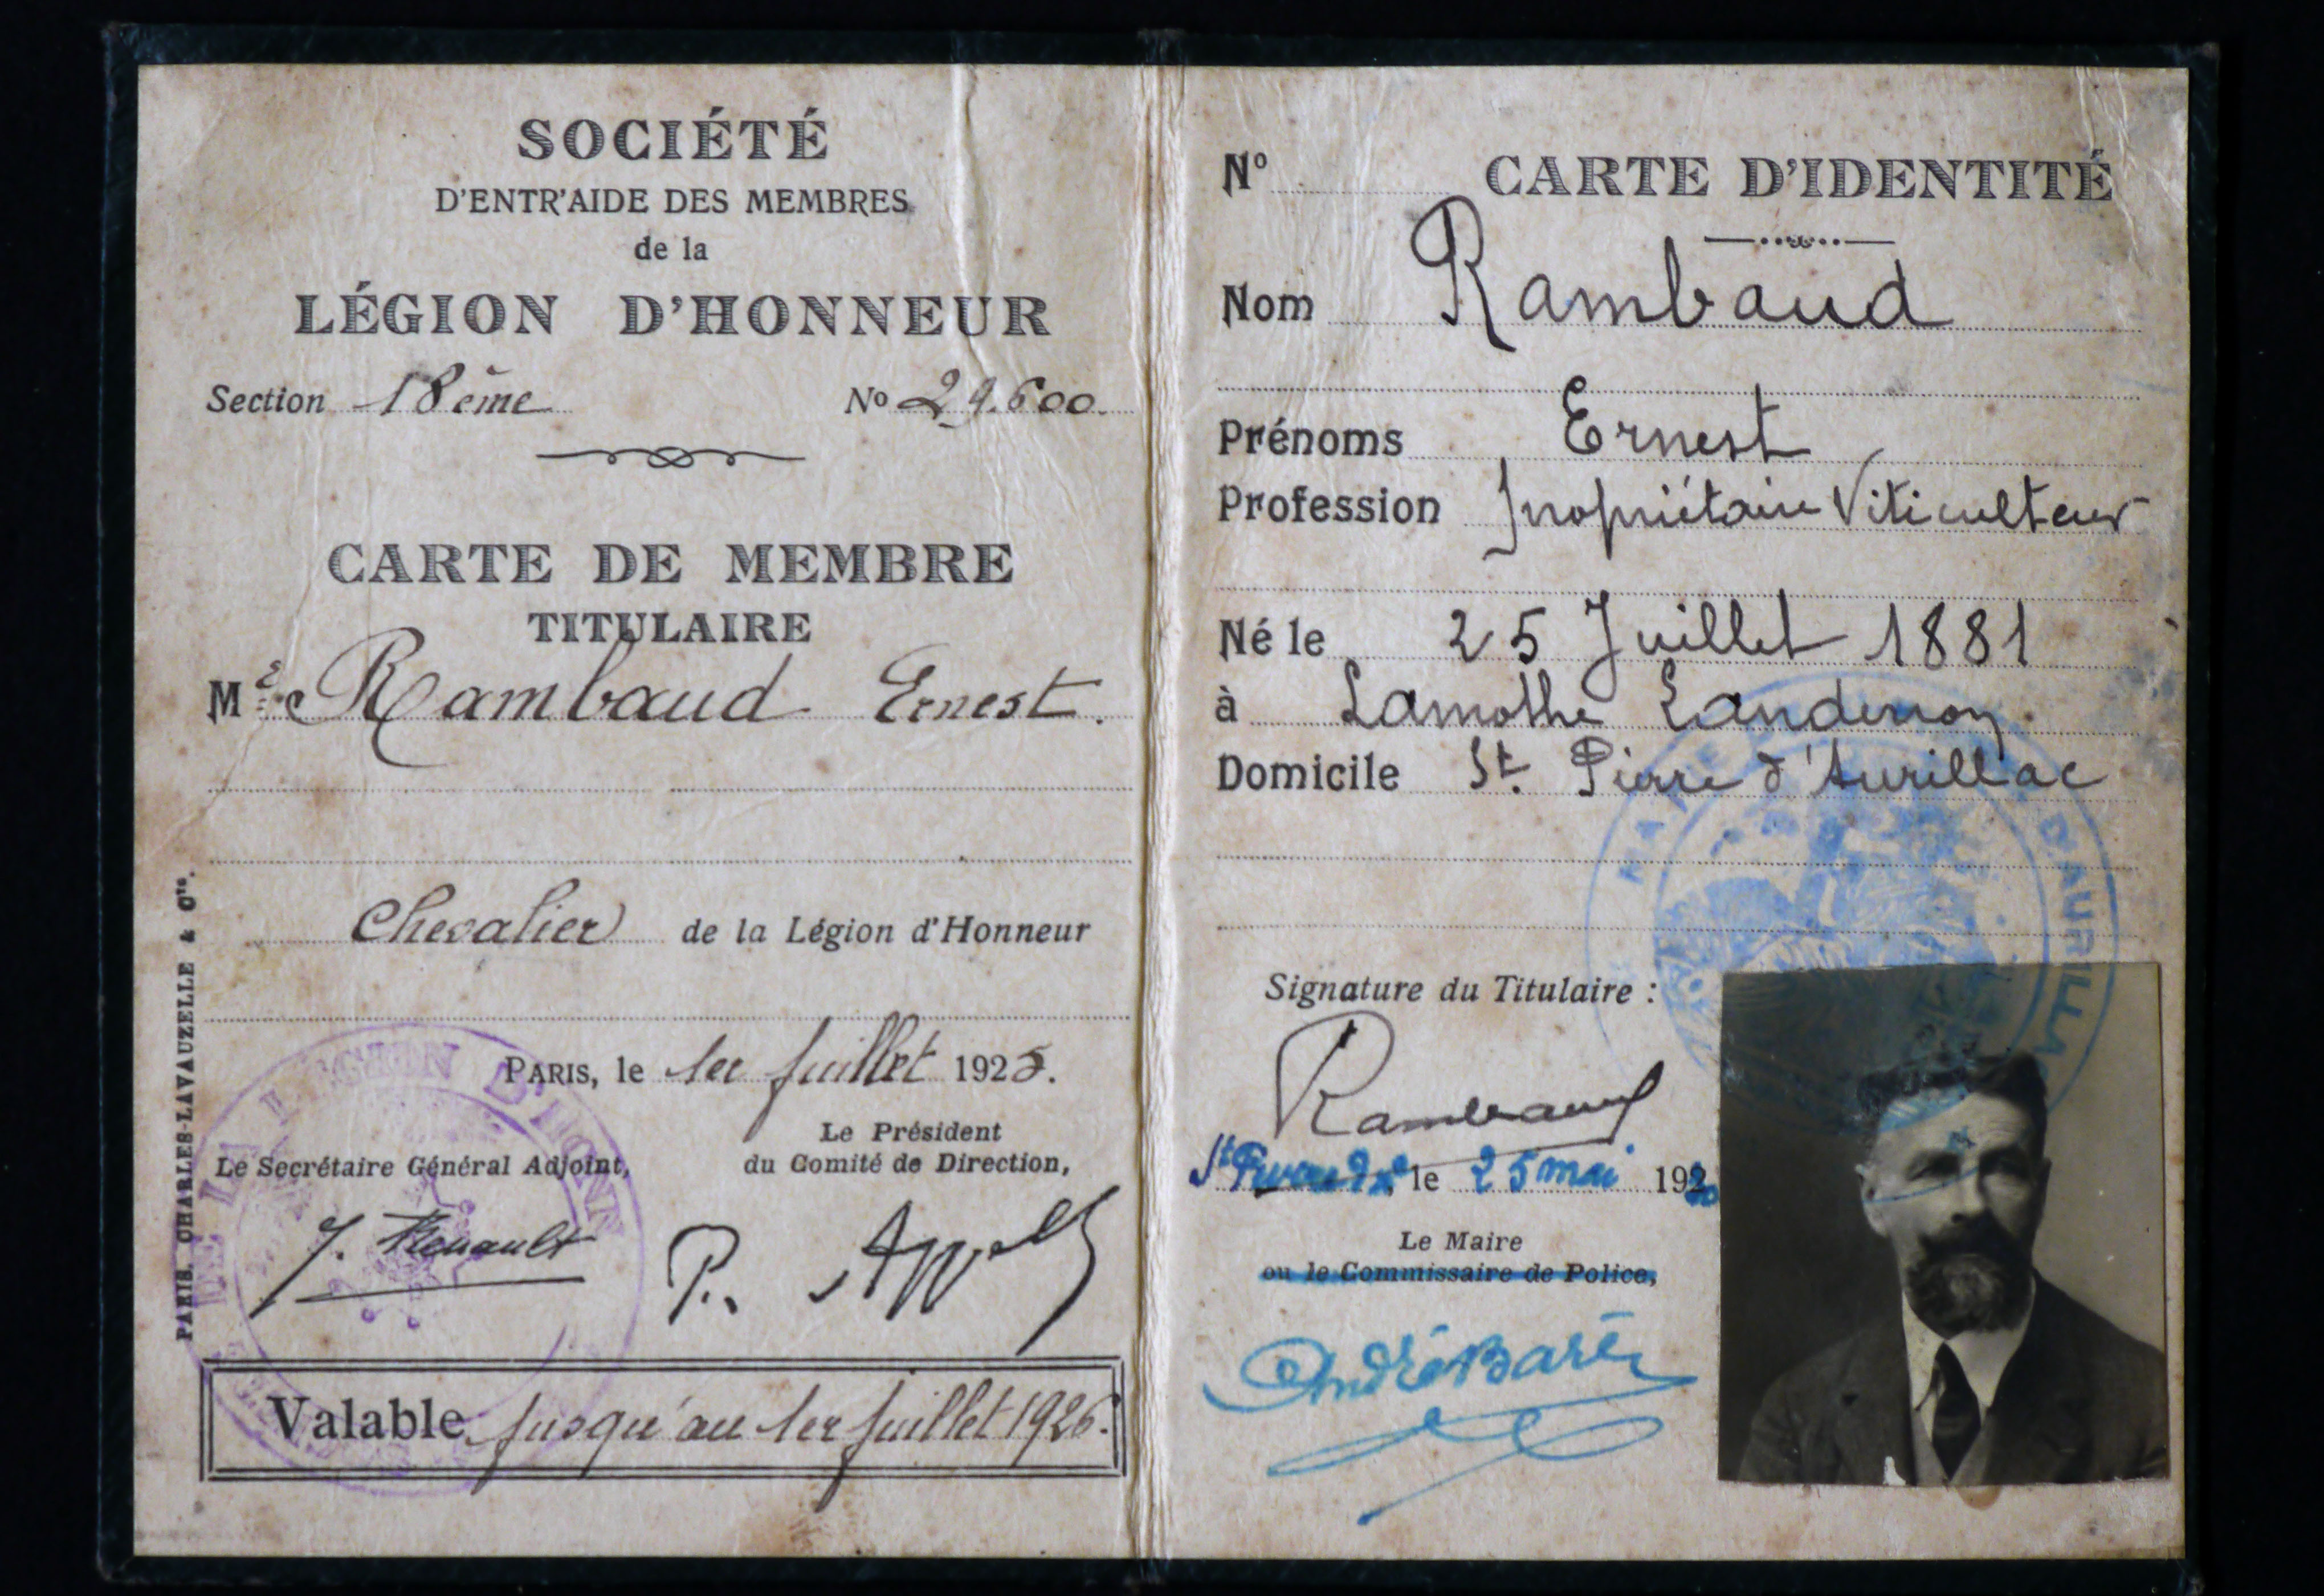 SOCIÉTÉ
D'ENTR'AIDE DES MEMBRES
de la
LÉGION D'HONNEUR
Section 18ème No 29.600.
CARTE DE MEMBRE
TITULAIRE
Mr Rambaud Ernest.
Chevalier de la Légion d'Honneur
PARIS, le 1er juillet 1925.
Le Secrétaire Général Adjoint,
Le Président
du Comité de Direction,
J. Renault
P. Appell
Valable jusqu'au 1er juillet 1926.
PARIS. CHARLES-LAVAUZELLE & Cie.
DE LA LÉGION D'HONN
No CARTE D'IDENTITÉ
Nom Rambaud
Prénoms Ernest
Profession propriétaire Viticulteur
Né le 25 Juillet 1881
à Lamothe Landerron
Domicile St. Pierre d'Aurillac
D'AURILLA
Signature du Titulaire :
Rambaud
St Pierre d'A, le 25 mai 192
Le Maire
ou le Commissaire de Police,
André Baré